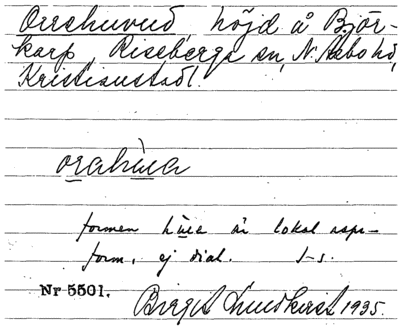 Orrehuvud, höjd å Björ-
karp, Riseberga sn, N. Åsbo hd,
Kristianstadl.
orahùa
formen hùa är lokal
form, ej dial.
Nr 5501. Birgit Lundkvist 1935.